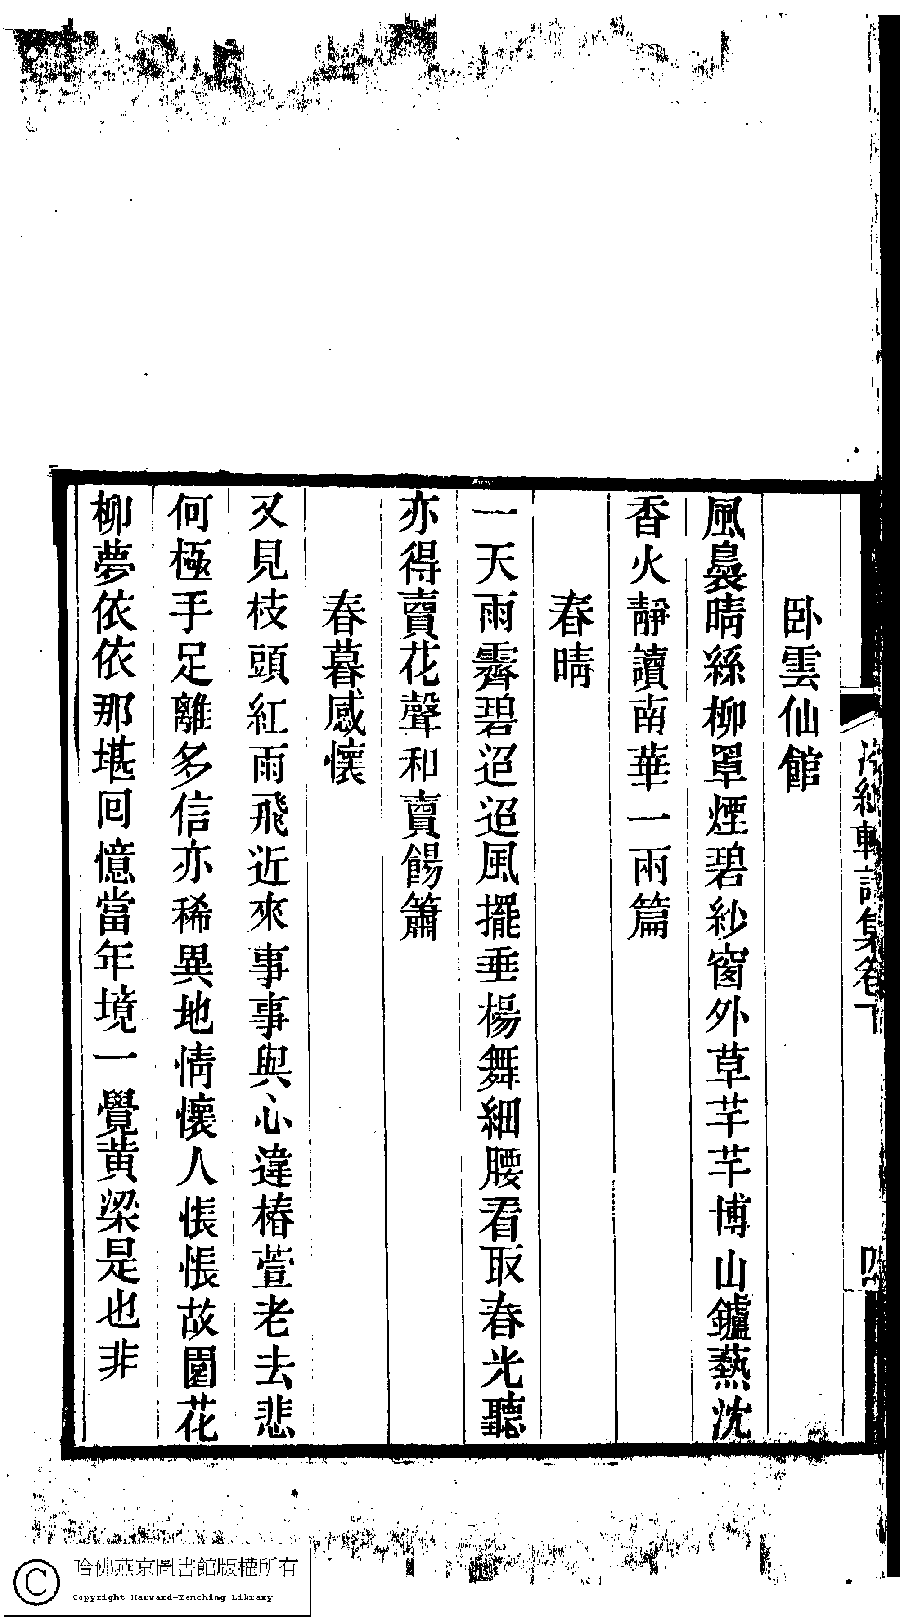 卧雲仙館
風裊晴絲柳罩煙碧紗窗外草芊芊博山鑪爇沈
香火靜讀南華一兩篇
春晴
一天雨霽碧迢迢風擺垂楊舞細腰看取春光聽
亦得賣花聲和賣餳簫
春暮感懷
又見枝頭紅雨飛近來事事與心違椿萱老去悲
何極手足離多信亦稀異地情懷人悵悵故園花
柳夢依依那堪回憶當年境一覺黃粱是也非
紅軒詩集卷下
四
哈佛燕京圖書館版權所有
Copyright Harvard-Yenching Library